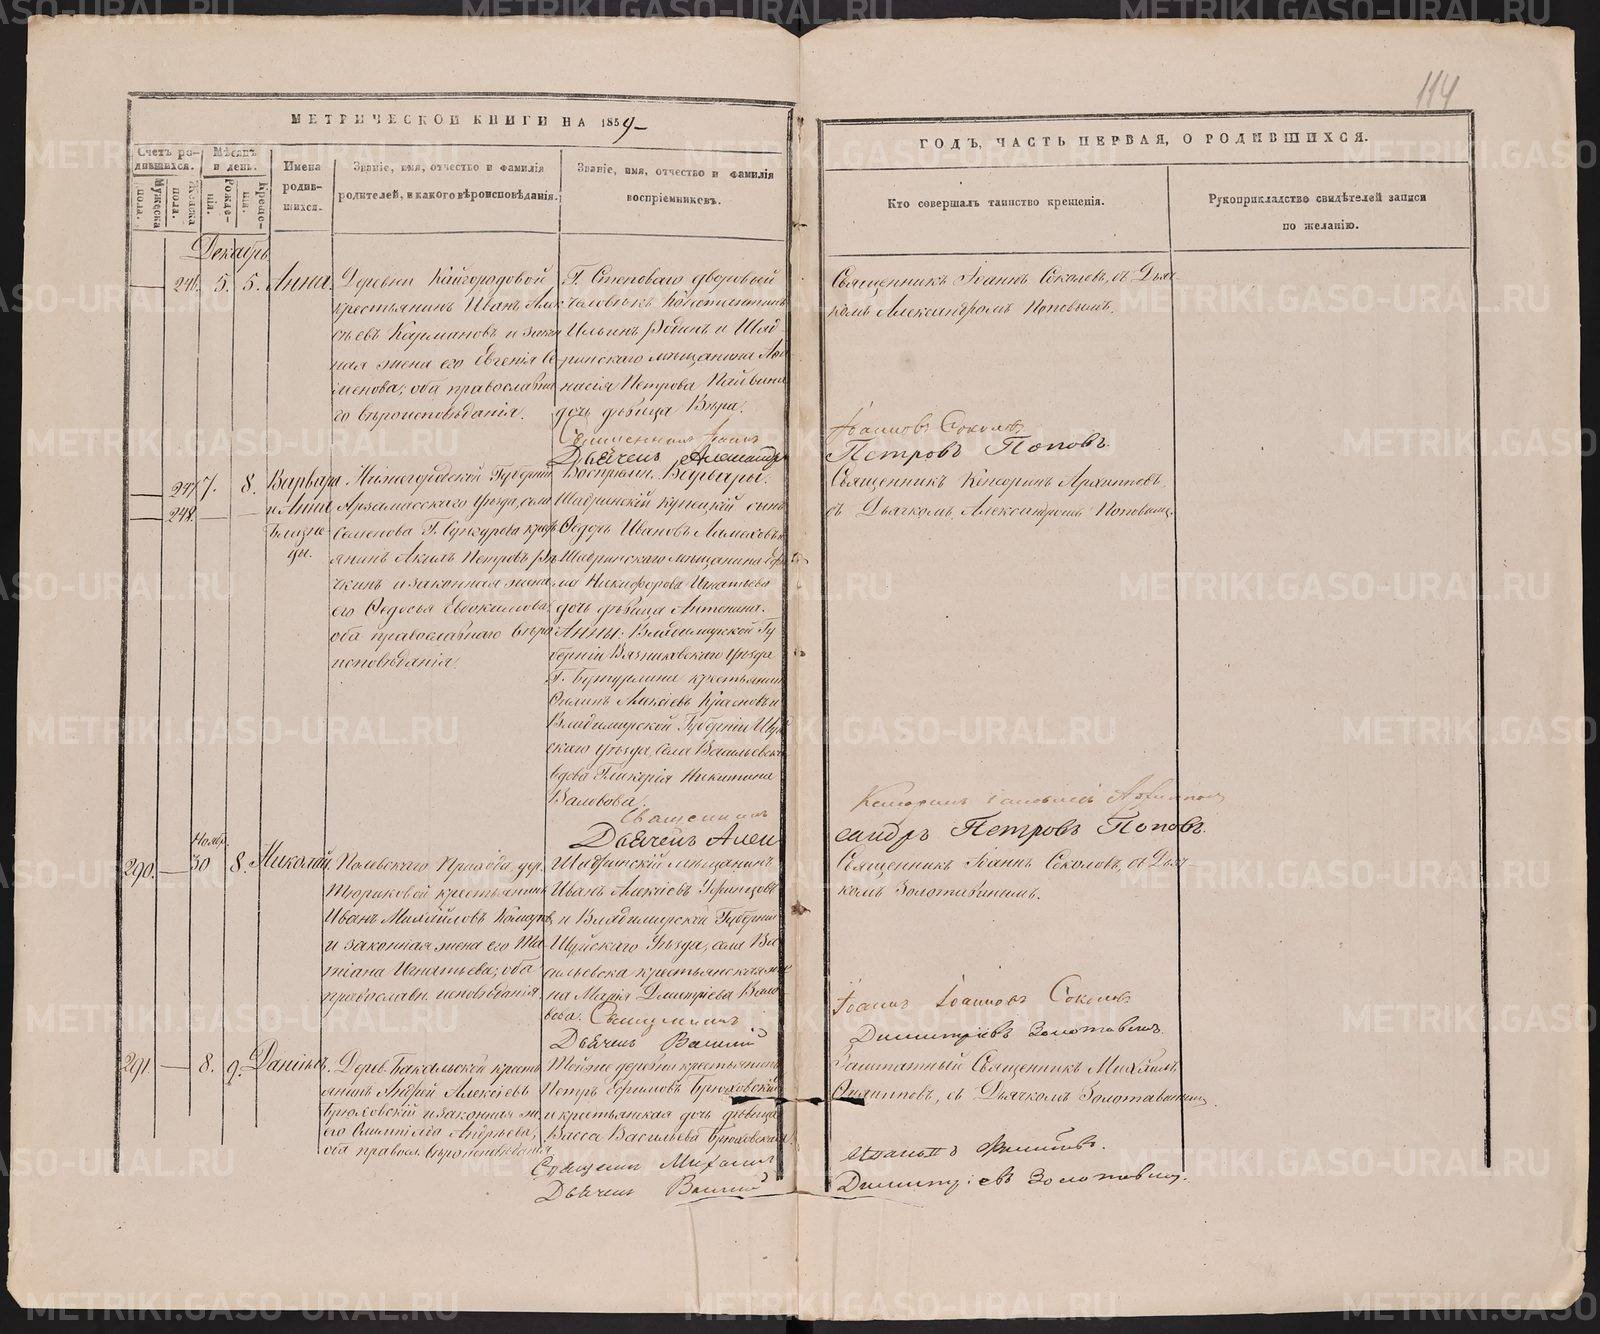 114
МЕТРИЧЕСКОЙ КНИГИ НА 1859
ГОДЪ, ЧАСТЬ ПЕРВАЯ, О РОДИВШИХСЯ.
Счетъ ро-
дившихся.
Мужеска
пола.
Женска
пола.
Мѣсяцъ
и день.
Рожде-
нія.
Креще-
нія.
Имена
родив-
шихся.
Званіе, имя, отчество и фамилія
родителей, и какого вѣроисповѣданія.
Званіе, имя, отчество и фамилія
воспріемниковъ.
Кто совершалъ таинство крещенія.
Рукоприкладство свидѣтелей записи
по желанію.
Декабрь
246. 5. 5. Анна.
Деревни Кайгородовой
крестьянинъ Иванъ Алек
сѣевъ Кармановъ и закон
ная жена его Евгенія Се
менова, оба православна
го вѣроисповѣданія.
Г. Степоваго дворовый
человѣкъ Константинъ
Ильинъ Родинъ и Шад-
ринскаго мѣщанина Афа
насія Петрова
дочь дѣвица Вѣра.
Священникъ Іоаннъ
Дьячекъ Александръ
Священникъ Іоаннъ Соколовъ, съ Дьяч-
комъ Александромъ Поповымъ.
Іоанновъ Соколовъ
Петровъ Поповъ
247 7. 8. Варвара
248 и Анна
Близне-
цы.
Нижегородской Губерніи
Арзамасскаго уѣзда, села
Семенова Г. кресть
янинъ Акимъ Петровъ
и законная жена
его Ѳедосья Евдокимова,
оба православнаго вѣро
исповѣданія.
Воспріемн. Варвары:
Шадринскій купецкій сынъ
Ѳедоръ Ивановъ и
Шадринскаго мѣщанина
Никифорова Игнатьева
дочь дѣвица Антонина.
Анны: Владимирской Гу
берніи Вязниковскаго уѣзда
Г. Бутурлина крестьянинъ
Алексѣевъ и
Владимирской Губерніи Шуй
скаго уѣзда, села Васильевска
вдова Гликерія Никитина
Валовова.
Священникъ
Дьячекъ Алек
Священникъ Кенсоринъ Архиповъ,
съ Дьячкомъ Александромъ Поповымъ.
сандръ Петровъ Поповъ.
Ноябр.
290. 30 8. Николай.
Полевскаго Прихода, дер.
Тюриковой крестьянинъ
Иванъ Михайловъ Комаровъ
и законная жена его Та-
тіана Игнатьева, оба
православн. исповѣданія.
Шадринскій мѣщанинъ
Иванъ Алексѣевъ
и Владимирской Губерніи
Шуйскаго Уѣзда, села Ва-
сильевска крестьянская же
на Марія Дмитріева Вало
вова. Священникъ
Дьячекъ Василій
Священникъ Іоаннъ Соколовъ, съ Дьяч-
комъ Золотавинымъ.
Іоаннъ Іоанновъ Соколовъ
Димитріевъ Золотавинъ.
291. 8. 9. Даніилъ.
Дерев. Бакальской кресть
янинъ Андрей Алексѣевъ
Брюховскій и законная ж.
его Олимпіада Андреева,
оба правосл. вѣроисповѣданія
Тойже деревни крестьянинъ
Петръ Ефимовъ Брюховскій
и крестьянская дочь дѣвица
Васса Васильева Брюховская.
Священникъ Михаилъ
Дьячекъ Василій
Заштатный Священникъ Михаилъ
съ Дьячкомъ Золотавинымъ.
Димитріевъ Золотавинъ.
METRIKI.GASO-URAL.RU